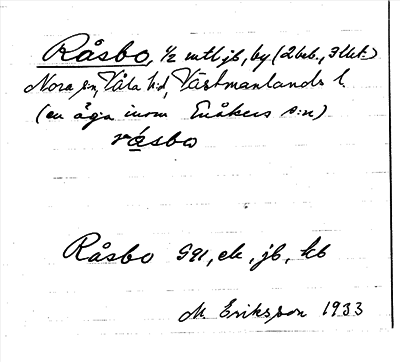 Råsbo, 1/2 mtl jb, by (2 beb., 3 lkt.)
Nora sn, Våla hd, Västmanlands l.
(en äga inom Enåkers s:n)
råsbo
Råsbo G91, ek, jb, kb
M. Eriksson 1933